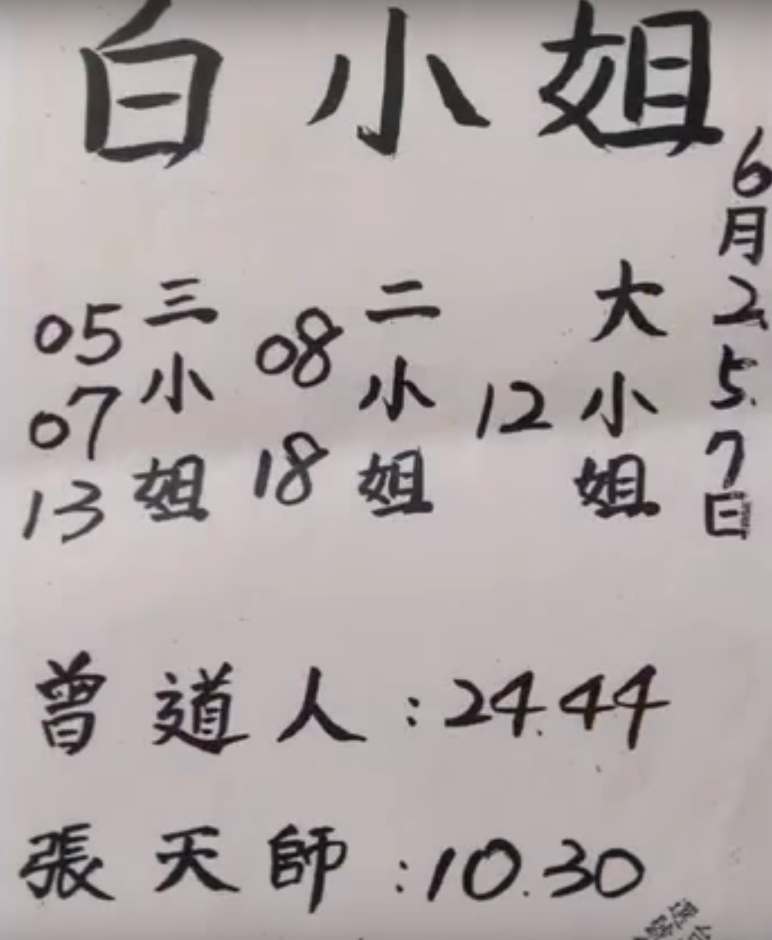 白小姐
6月2.5.7日
大小姐
12
二小姐
08
18
三小姐
05
07
13
曾道人:24.44
張天師:10.30